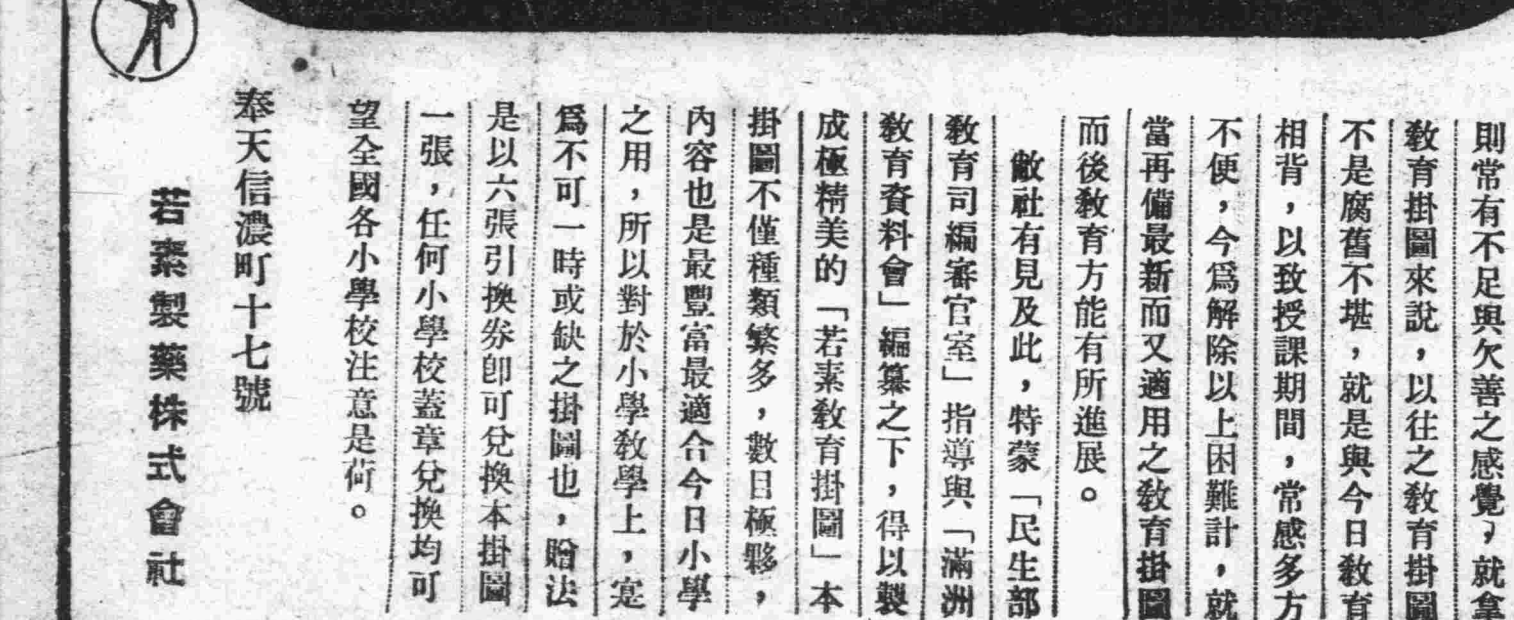 則常有不足與欠善之感覺，就拿
敎育掛圖來說，以往之敎育掛圖
不是腐舊不堪，就是與今日敎育
相背，以致授課期間，常感多方
不便，今爲解除以上困難計，就
當再備最新而又適用之敎育掛圖
而後敎育方能有所進展。
敝社有見及此，特蒙「民生部
敎育司編審官室」指導與「滿洲
敎育資料會」編纂之下，得以製
成極精美的「若素敎育掛圖」本
掛圖不僅種類繁多，數目極夥，
內容也是最豐富最適合今日小學
之用，所以對於小學敎學上，寔
爲不可一時或缺之掛圖也，贈法
是以六張引換券卽可兌換本掛圖
一張，任何小學校蓋章兌換均可
望全國各小學校注意是荷。
奉天信濃町十七號
若素製藥株式會社